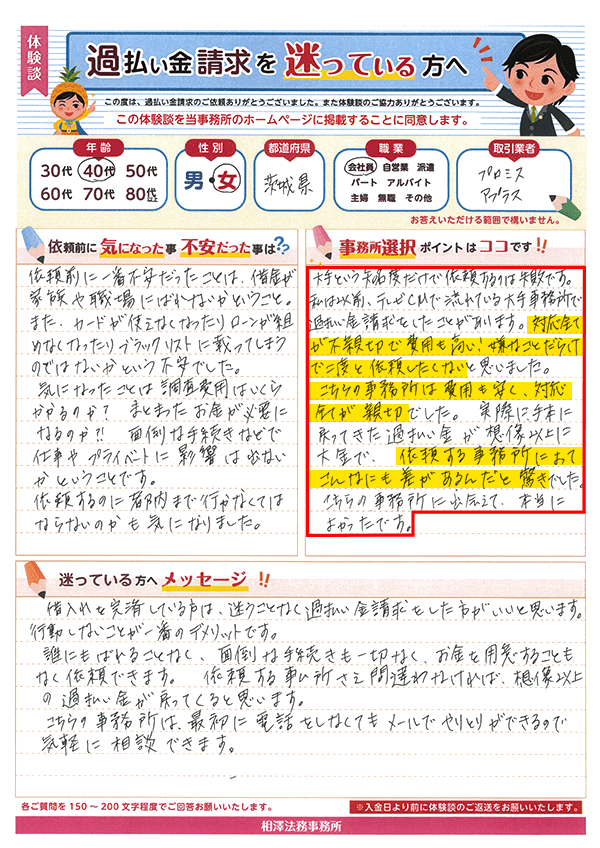 体験談
過払い金請求を迷っている方へ
この度は、過払い金請求のご依頼ありがとうございました。また体験談のご協力ありがとうございます。
この体験談を当事務所のホームページに掲載することに同意します。
年齢
30代 40代 50代
60代 70代 80代以上
性別
男・女
都道府県
茨城県
職業
会社員 自営業 派遣
パート アルバイト
主婦 無職 その他
取引業者
プロミス
アプラス
お答えいただける範囲で構いません。
依頼前に気になった事 不安だった事は??
依頼前に一番不安だったことは、借金が
家族や職場にばれないかということ。
また、カードが使えなくなったりローンが組
めなくなったりブラックリストに載ってしまう
のではないかという不安でした。
気になったことは調査費用はいくら
かかるのか? まとまったお金が必要に
なるのか?! 面倒な手続きなどで
仕事やプライベートに影響は出ない
かということです。
依頼するのに都内まで行かなくては
ならないのかも気になりました。
事務所選択 ポイントはココです!!
大手という知名度だけで依頼するのは失敗です。
私は以前、テレビCMで流れている大手事務所で
過払い金請求をしたことがあります。対応全て
が不親切で費用も高い!嫌なことだらけ
で二度と依頼したくないと思いました。
こちらの事務所は費用も安く、対応
全てが親切でした。 実際に手本に
戻ってきた過払い金が想像以上に
大金で、依頼する事務所によって
こんなにも差があるんだと驚きでした。
こちらの事務所に出会えて、本当に
よかったです。
迷っている方へ メッセージ !!
借入れを完済している方は、迷うことなく過払い金請求をした方がいいと思います。
行動しないことが一番のデメリットです。
誰にもばれることなく、面倒な手続きも一切なく、お金を用意することも
なく依頼できます。 依頼する事ム所さえ間違わなければ、想像以上
の過払い金が戻ってくると思います。
こちらの事務所は、最初に電話をしなくてもメールでやりとりができるので
気軽に相談できます。
各ご質問を150～200文字程度でご回答お願いいたします。
※入金日より前に体験談のご返送をお願いいたします。
相澤法務事務所